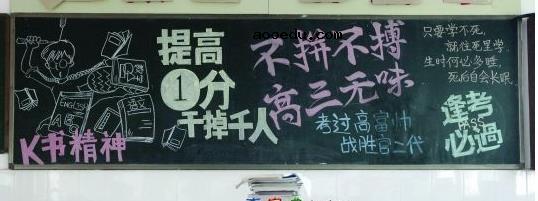 aooedu.com
K书精神
ENGLISH
语文
提高
1分
干掉千人
不拼不搏
高三无味
考过高富帅
战胜官二代
只要学不死,
就往死里学.
生时何必多睡,
死后自会长眠.
逢考
必過